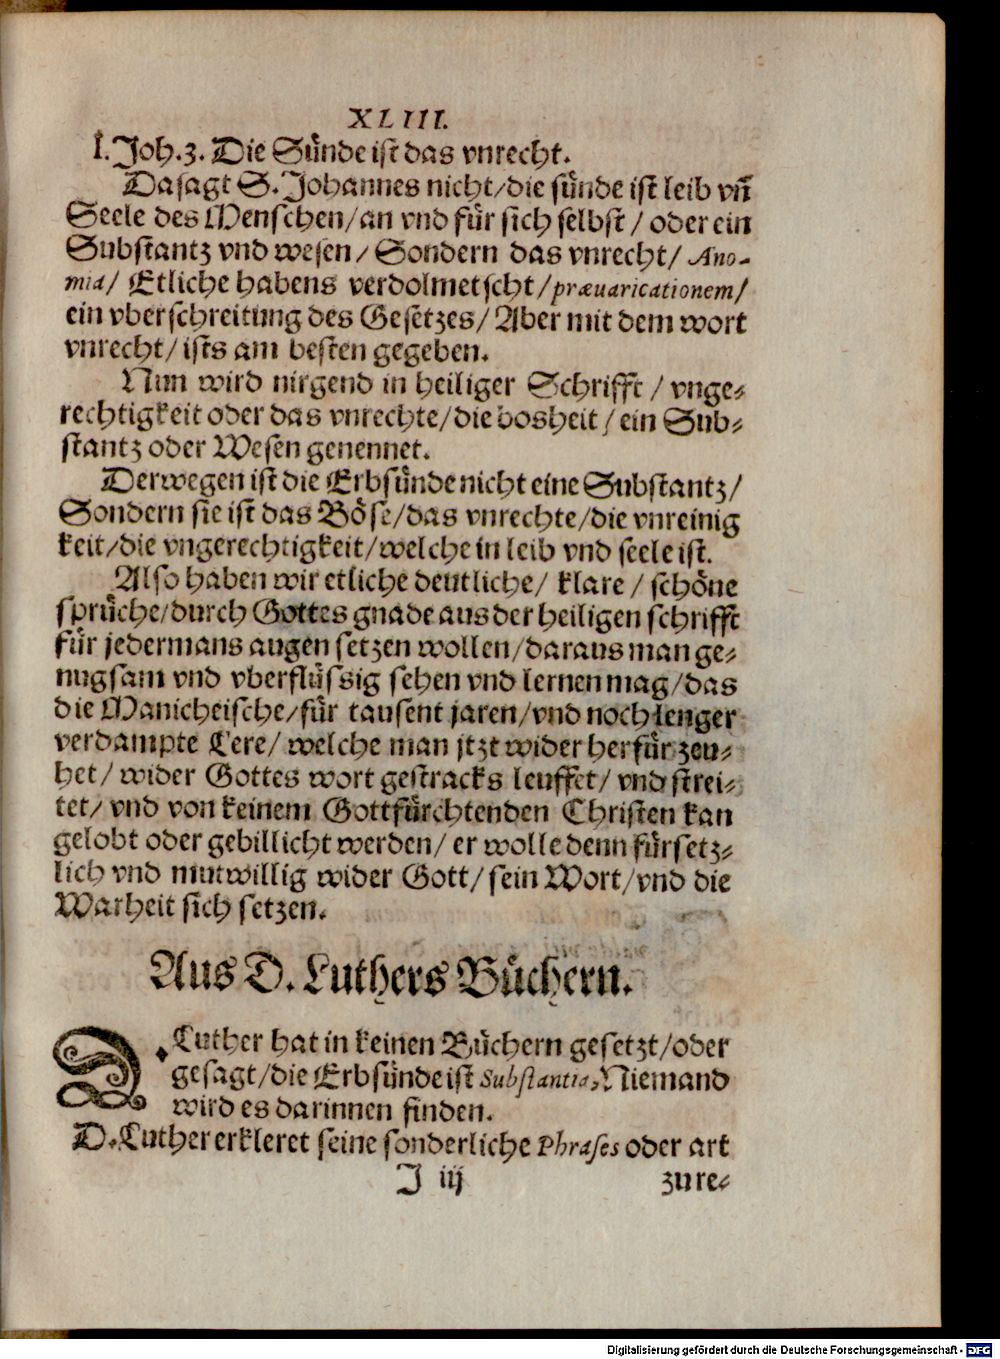 XLIII.
I. Joh. 3. Die Sünde ist das vnrecht.
Da sagt S. Johannes nicht/ die sünde ist leib vñ
Seele des Menschen/ an vnd für sich selbst/ oder ein
Substantz vnd wesen/ Sondern das vnrecht/ Ano-
mia/ Etliche habens verdolmetscht/ præuaricationem/
ein vberschreitung des Gesetzes/ Aber mit dem wort
vnrecht/ ists am besten gegeben.
Nun wird nirgend in heiliger Schrifft/ vnge-
rechtigkeit oder das vnrechte/ die bosheit/ ein Sub-
stantz oder Wesen genennet.
Derwegen ist die Erbsünde nicht eine Substantz/
Sondern sie ist das Böse/ das vnrechte/ die vnreinig
keit/ die vngerechtigkeit/ welche in leib vnd seele ist.
Also haben wir etliche deutliche/ klare/ schöne
sprüche/ durch Gottes gnade aus der heiligen schrifft
für jedermans augen setzen wollen/ daraus man ge-
nugsam vnd vberflüssig sehen vnd lernen mag/ das
die Manicheische/ für tausent jaren/ vnd noch lenger
verdampte Lere/ welche man jtzt wider herfür zeu-
het/ wider Gottes wort gestracks leuffet/ vnd strei-
tet/ vnd von keinem Gottfürchtenden Christen kan
gelobt oder gebillicht werden/ er wolle denn fürsetz-
lich vnd mutwillig wider Gott/ sein Wort/ vnd die
Warheit sich setzen.
Aus D. Luthers Büchern.
D. Luther hat in keinen Büchern gesetzt/ oder
gesagt/ die Erbsünde ist Substantia, Niemand
wird es darinnen finden.
D. Luther erkleret seine sonderliche Phrases oder art
J iij zu re-
Digitalisierung gefördert durch die Deutsche Forschungsgemeinschaft - DFG